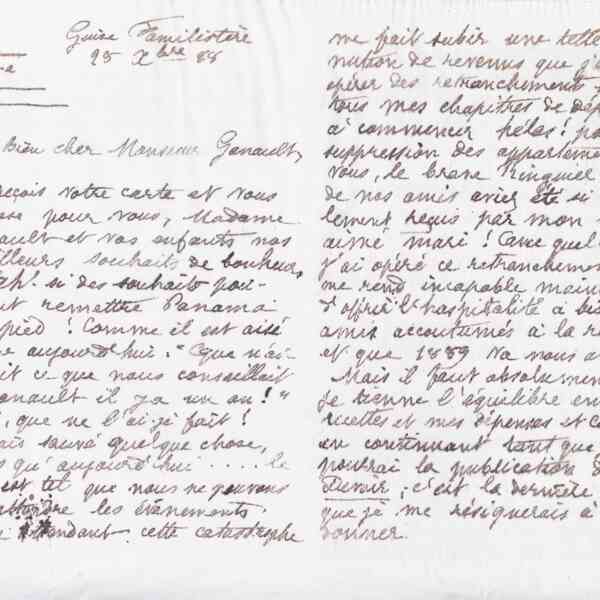 Guise Familistère
25 Xbre 88
re
Bien cher Monsieur Ganault,
reçois votre carte et vous
pour vous, Madame
ault et vos enfants nos
illeurs souhaits de bonheur,
Ah! si des souhaits pou-
nt remettre Panama
pied ! Comme il est aisé
e aujourd'hui. " Que n'ai-
it ce que nous conseillait
Ganault il y a un an ! "
, que ne l'ai-je fait !
ais sauvé quelque chose,
s qu'aujourd'hui . . . . . le
est tel que nous ne pouvons
attendre les évènements.
attendant cette catastrophe
me fait subir une telle
nution de revenus que j'
opérer des retranchements
tous mes chapitres de dép
à commencer hélas ! p
suppression des apparteme
vous, le brave Ringuier
de nos amis aviez été si
lement reçus par mon
aimé mari ! Avec quel
j'ai opéré ce retranchemen
me rend incapable main
d'offrir l'hospitalité à bi
amis accoutumés à la re
et que 1889 va nous a
Mais il faut absolumen
je tienne l'équilibre en
recettes et mes dépenses et c
en continuant tant que
pourrai la publication d
Devoir ; c'est la dernière
que je me résignerais à
donner.